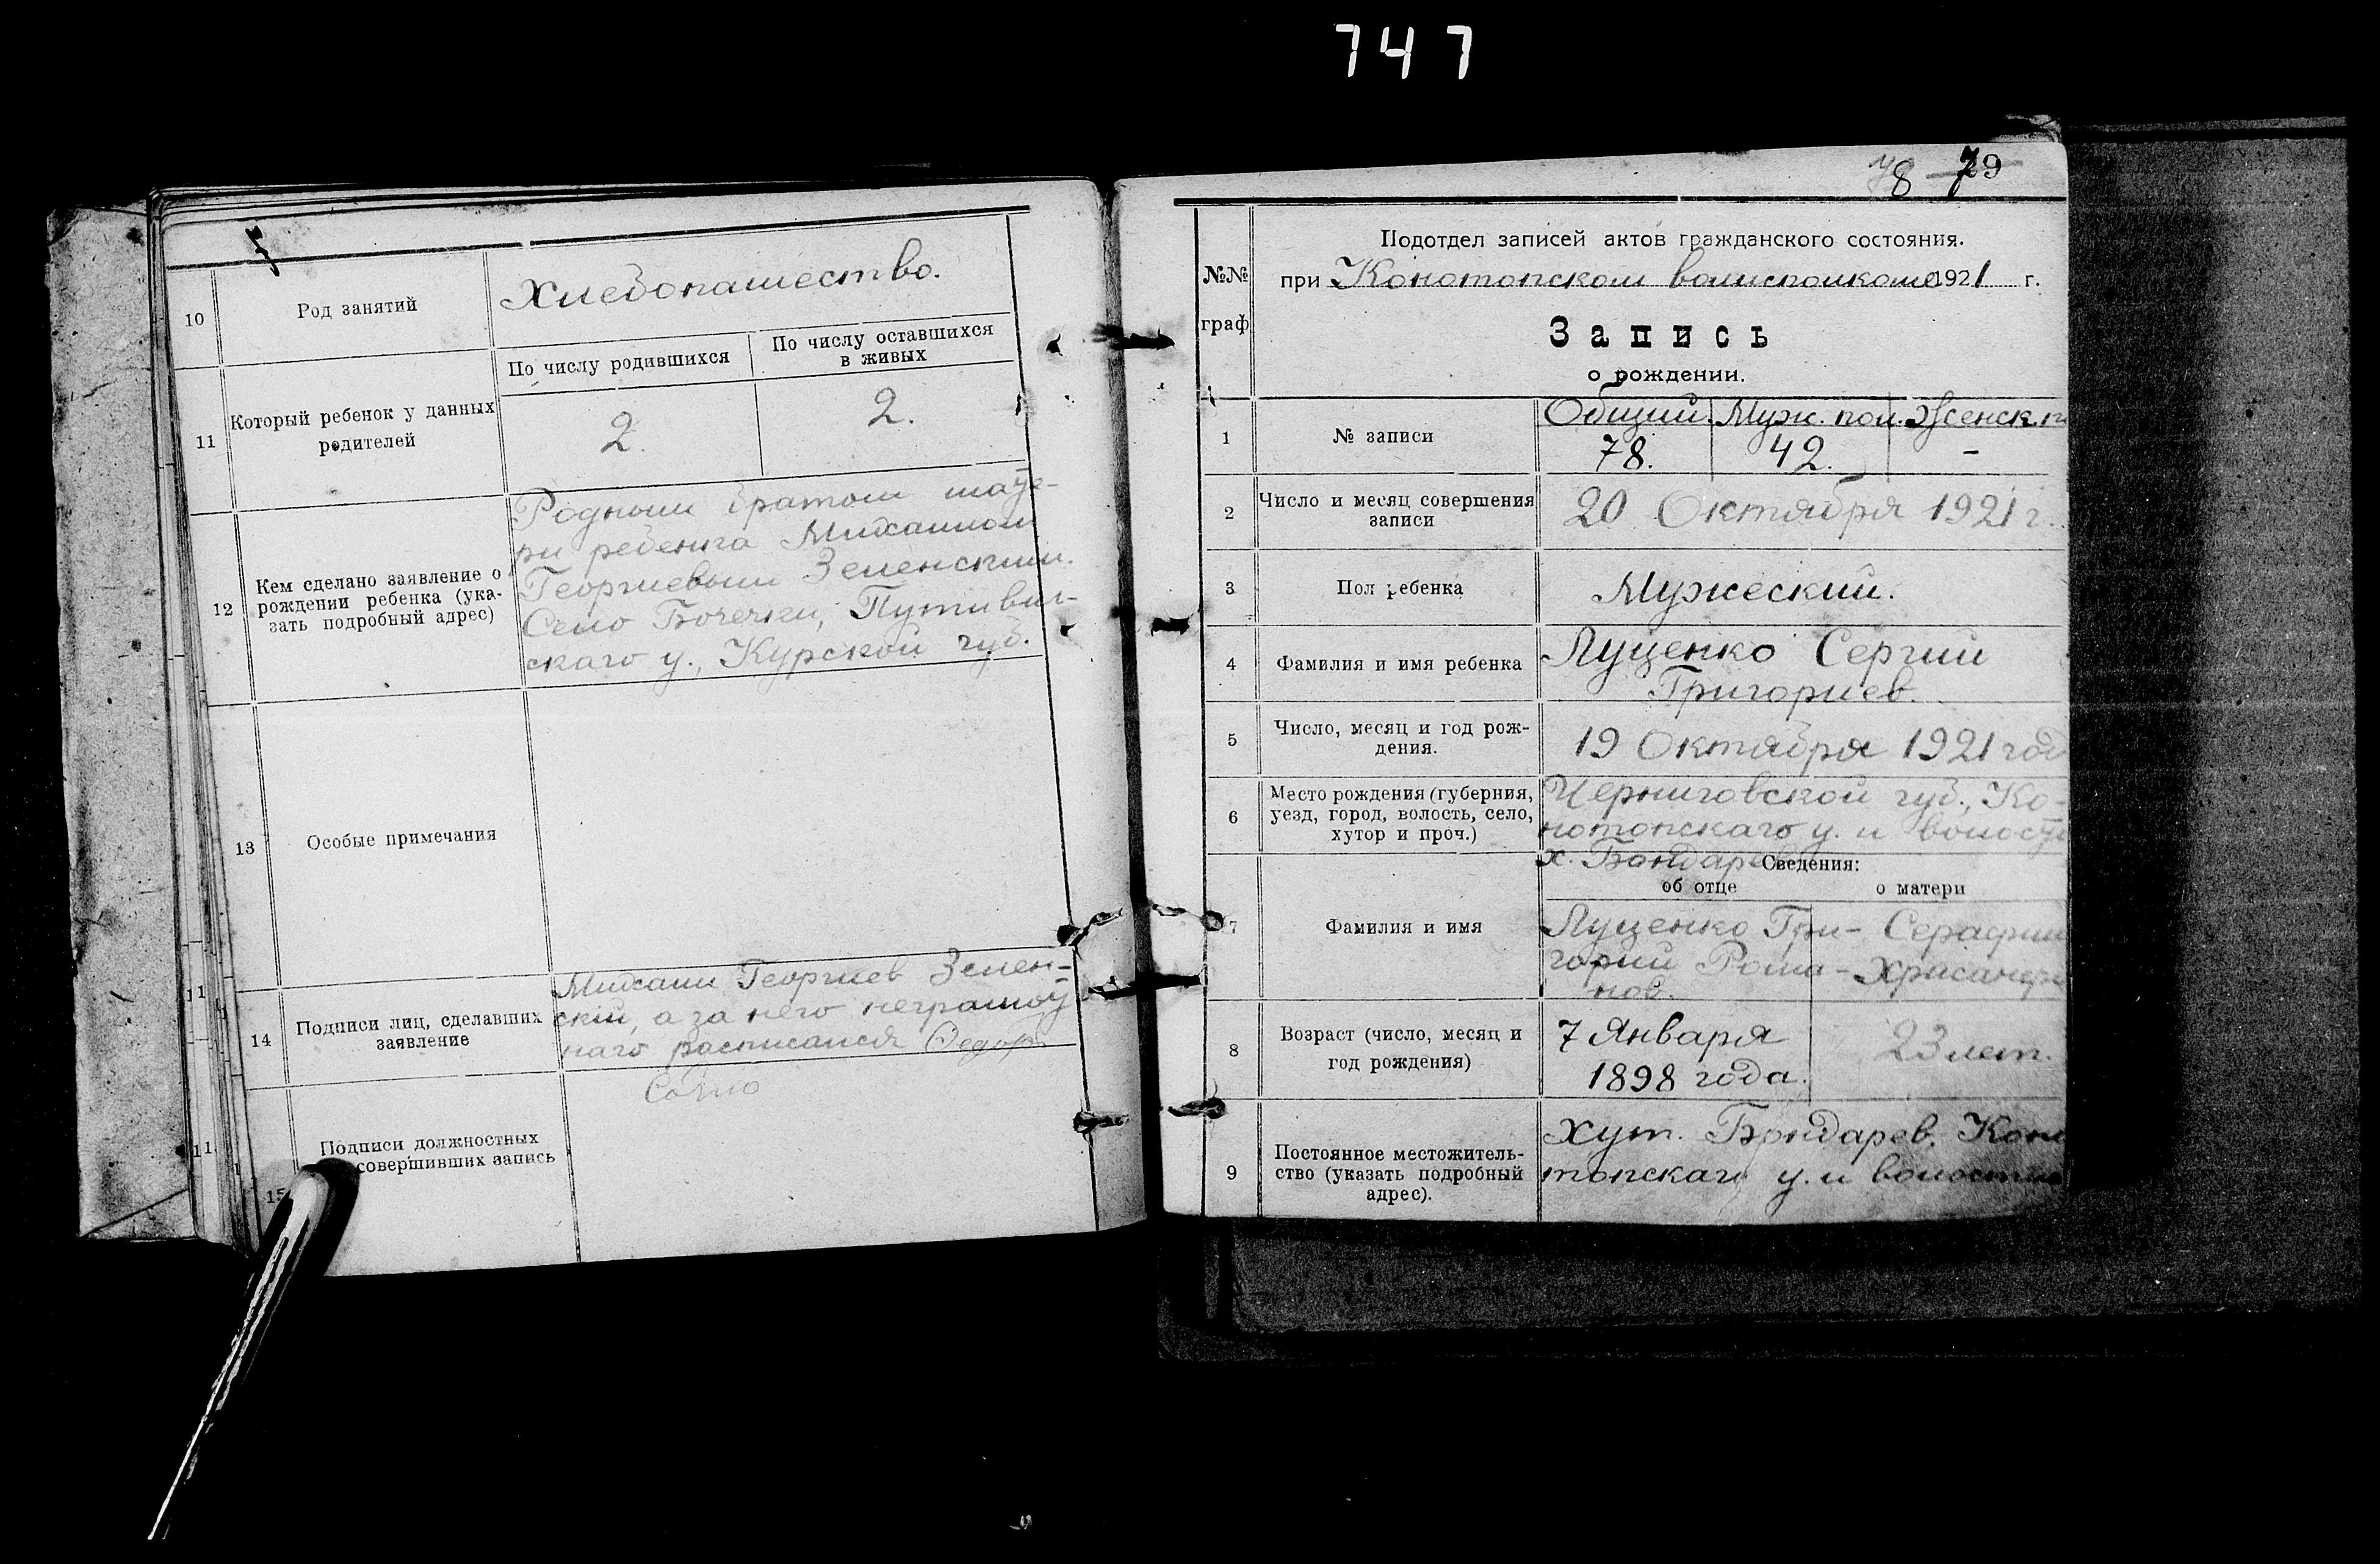 747
10
Род занятий
Хлебопашество.
11
Который ребенок у данных
родителей
По числу родившихся
По числу оставшихся
в живых
2.
2.
12
Кем сделано заявление о
рождении ребенка (ука-
зать подробный адрес)
Родным братом мате-
ри ребенка Михаилом
Георгиевым Зеленским.
Село Бочечки, Путивль-
скаго у., Курской губ.
13
Особые примечания
14
Подписи лиц, сделавших
заявление
Михаил Георгиев Зелен-
ский, а за него неграмот
наго расписался Федор
15
Подписи должностных
совершивших запись
78 79
№№
граф
Подотдел записей актов гражданского состояния.
при Конотопском волисполкоме 1921 г.
Запись
о рождении.
1
№ записи
Общий. Муж. пол. Женск. п
78. 42. -
2
Число и месяц совершения
записи
20 Октября 1921 г.
3
Пол ребенка
Мужеский.
4
Фамилия и имя ребенка
Луценко Сергий
Григориев.
5
Число, месяц и год рож-
дения.
19 Октября 1921 год
6
Место рождения (губерния,
уезд, город, волость, село,
хутор и проч.)
Черниговской губ., Ко-
нотопскаго у. и волости
х. Бондарев
Сведения:
об отце
о матери
7
Фамилия и имя
Луценко Гри-
горий Рома-
нов.
Серафим
8
Возраст (число, месяц и
год рождения)
7 Января
1898 года.
23 лет.
9
Постоянное местожитель-
ство (указать подробный
адрес).
Хут. Бондарев. Коно
топскаго у. и волости